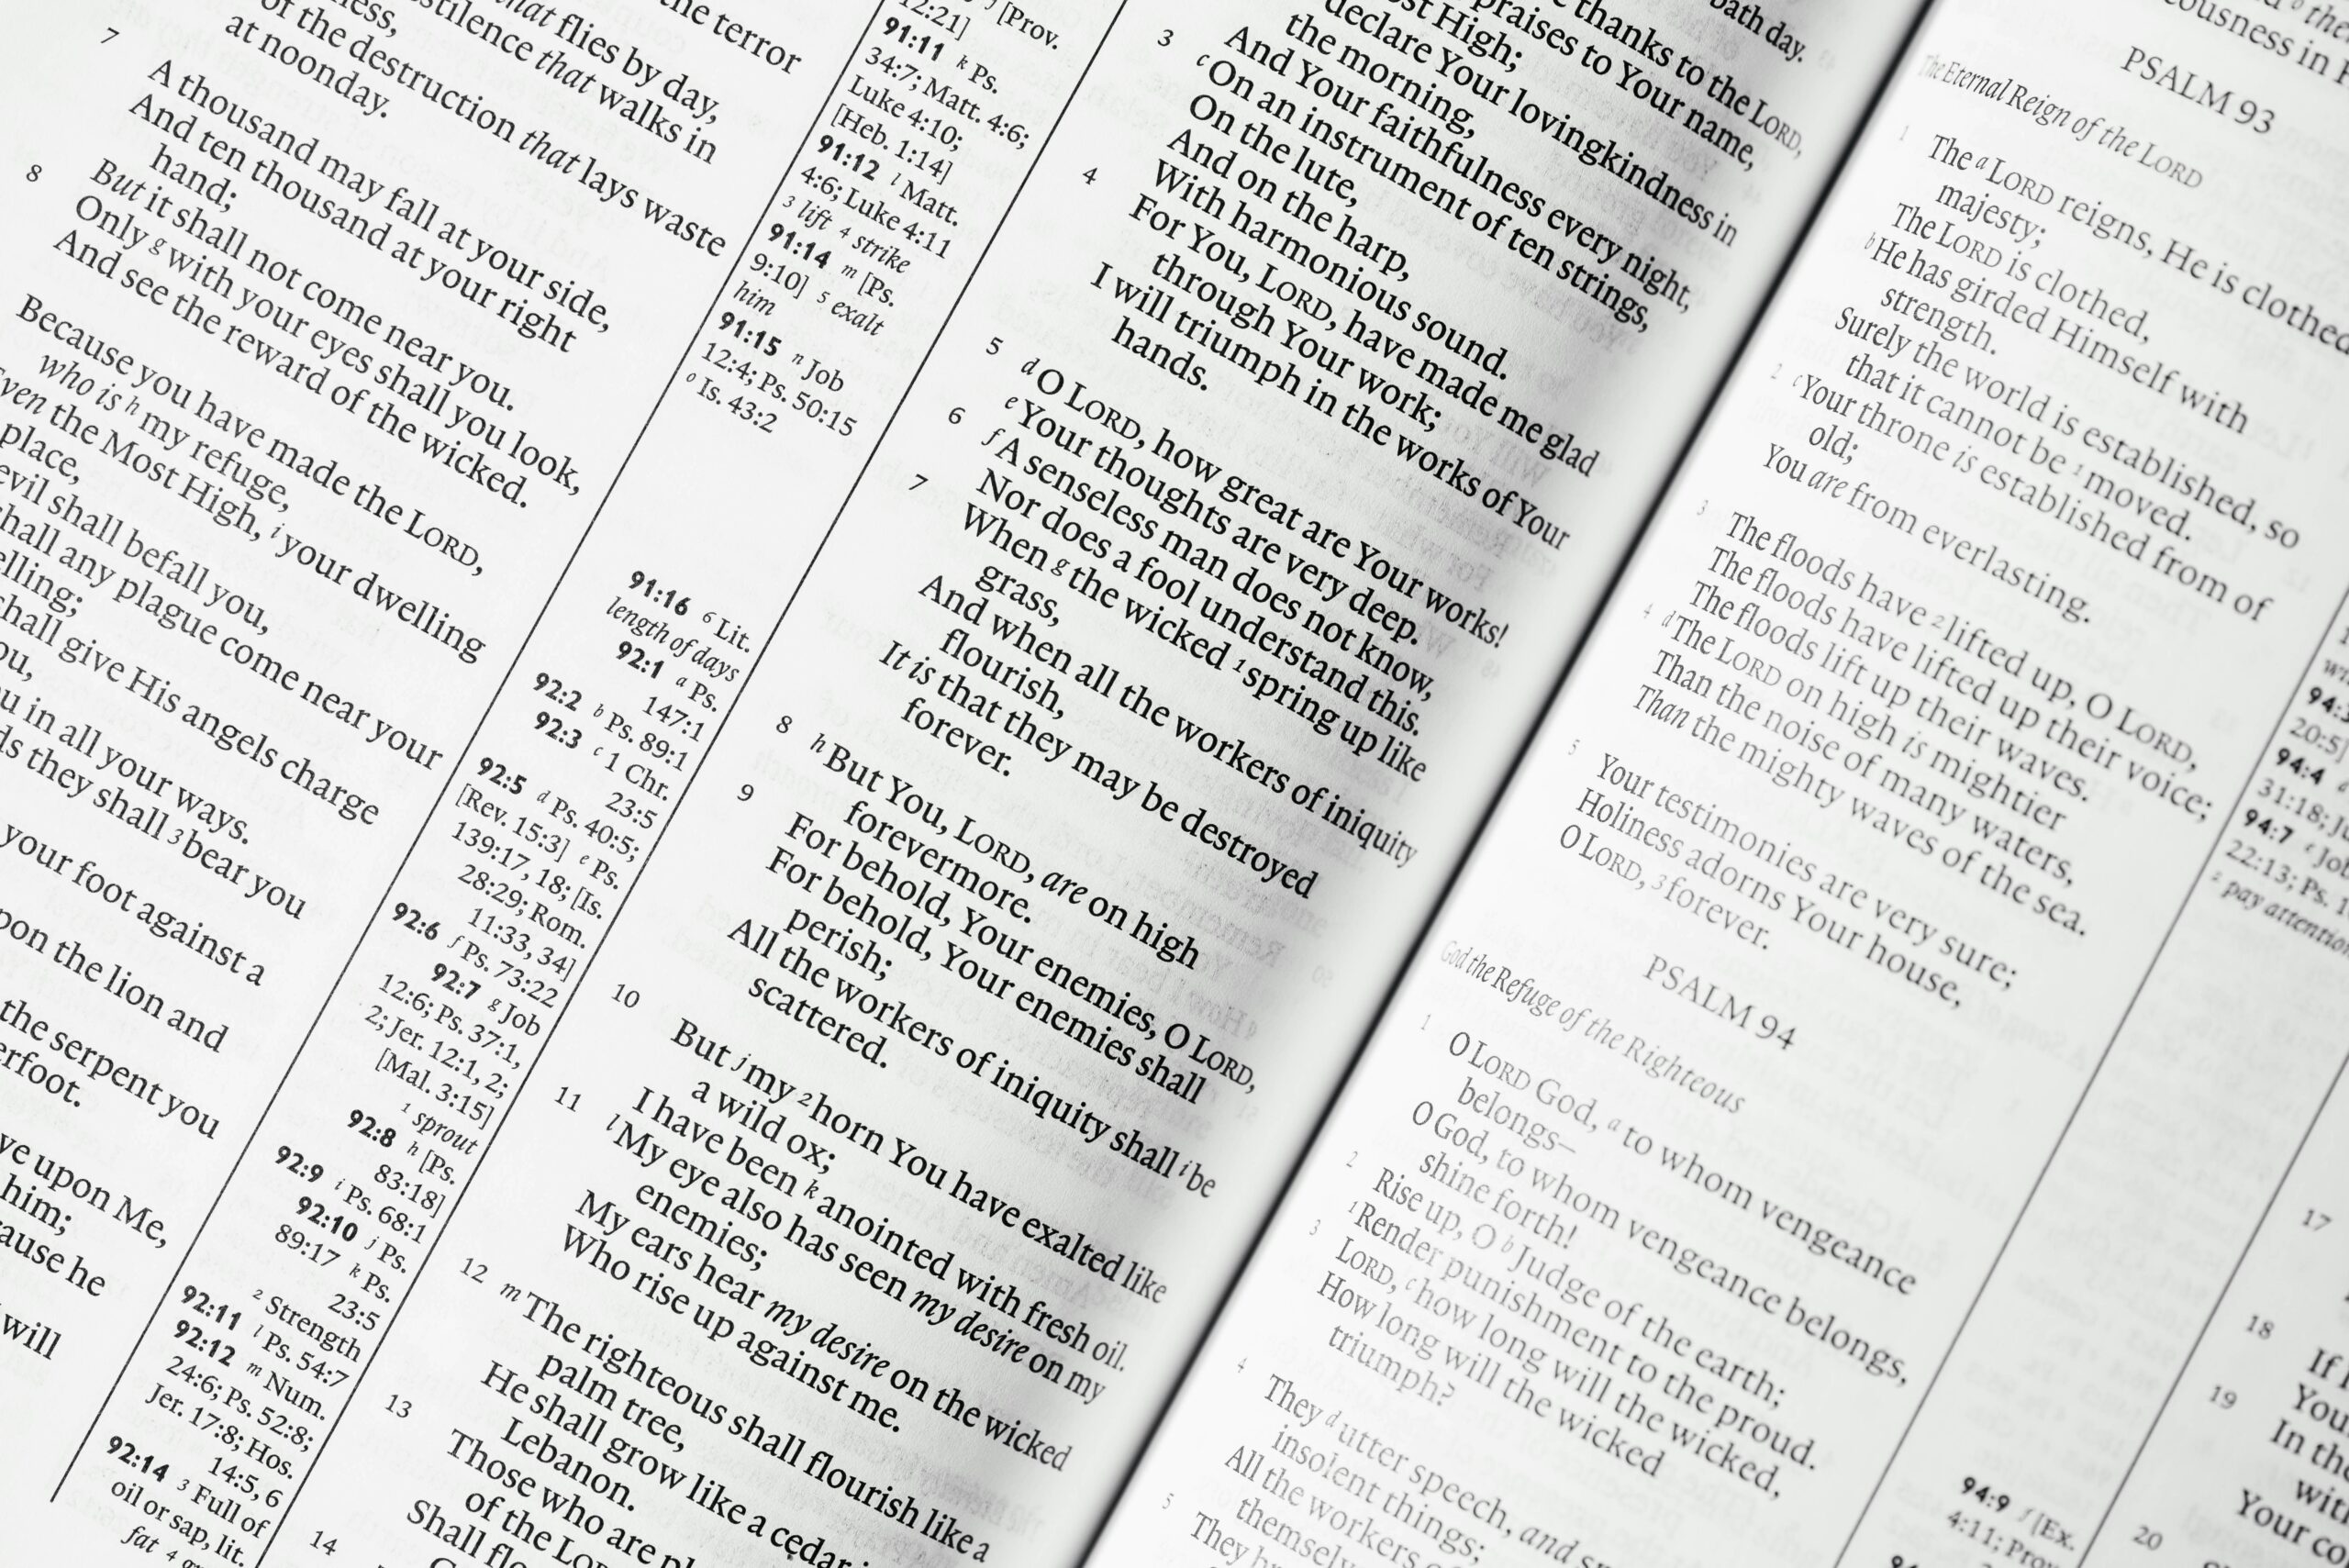 the terror
that flies by day,
that walks in
of the destruction that lays waste
at noonday.
7
A thousand may fall at your side,
And ten thousand at your right
hand;
But it shall not come near you.
8
Only g with your eyes shall you look,
And see the reward of the wicked.
Because you have made the LORD,
who is h my refuge,
the Most High, i your dwelling
place,
evil shall befall you,
any plague come near your
shall give His angels charge
in all your ways.
they shall 3 bear you
your foot against a
the lion and
the serpent you
upon Me,
him;
he
will
12:21]
[Prov.
91:11 k Ps.
34:7; Matt. 4:6;
Luke 4:10;
[Heb. 1:14]
91:12 l Matt.
4:6; Luke 4:11
3 lift 4 strike
91:14 m [Ps.
9:10] 5 exalt
him
91:15 n Job
12:4; Ps. 50:15
o Is. 43:2
91:16 6 Lit.
length of days
92:1 a Ps.
147:1
92:2 b Ps. 89:1
92:3 c 1 Chr.
23:5
92:5 d Ps. 40:5;
[Rev. 15:3] e Ps.
139:17, 18; [Is.
28:29; Rom.
11:33, 34]
92:6 f Ps. 73:22
92:7 g Job
12:6; Ps. 37:1,
2; Jer. 12:1, 2;
[Mal. 3:15]
1 sprout
92:8 h [Ps.
83:18]
92:9 i Ps. 68:1
92:10 j Ps.
89:17 k Ps.
23:5
2 Strength
92:11 l Ps. 54:7
92:12 m Num.
24:6; Ps. 52:8;
Jer. 17:8; Hos.
14:5, 6
92:14 3 Full of
oil or sap, lit.
fat 4
day.
thanks to the LORD,
praises to Your name,
Most High;
declare Your lovingkindness in
the morning,
And Your faithfulness every night,
3
c On an instrument of ten strings,
On the lute,
And on the harp,
With harmonious sound.
4
For You, LORD, have made me glad
through Your work;
I will triumph in the works of Your
hands.
5
d O LORD, how great are Your works!
e Your thoughts are very deep.
6
f A senseless man does not know,
Nor does a fool understand this.
7
When g the wicked 1 spring up like
grass,
And when all the workers of iniquity
flourish,
It is that they may be destroyed
forever.
8
h But You, LORD, are on high
forevermore.
9
For behold, Your enemies, O LORD,
For behold, Your enemies shall
perish;
All the workers of iniquity shall i be
scattered.
10
But j my 2 horn You have exalted like
a wild ox;
I have been k anointed with fresh oil.
11
l My eye also has seen my desire on my
enemies;
My ears hear my desire on the wicked
Who rise up against me.
12
m The righteous shall flourish like a
palm tree,
He shall grow like a cedar
Lebanon.
13
Those who are
of the LORD
Shall
14
PSALM 93
The Eternal Reign of the LORD
1
The a LORD reigns, He is clothed
majesty;
The LORD is clothed,
b He has girded Himself with
strength.
Surely the world is established, so
that it cannot be 1 moved.
2
c Your throne is established from of
old;
You are from everlasting.
3
The floods have 2 lifted up, O LORD,
The floods have lifted up their voice;
The floods lift up their waves.
4
d The LORD on high is mightier
Than the noise of many waters,
Than the mighty waves of the sea.
5
Your testimonies are very sure;
Holiness adorns Your house,
O LORD, 3 forever.
PSALM 94
God the Refuge of the Righteous
1
O LORD God, a to whom vengeance
belongs—
O God, to whom vengeance belongs,
shine forth!
2
Rise up, O b Judge of the earth;
1 Render punishment to the proud.
3
LORD, c how long will the wicked,
How long will the wicked
triumph?
4
They d utter speech, and
insolent things;
All the workers
5
They
20:5]
94:4
31:18;
94:7 e Job
22:13; Ps.
2 pay attention
94:9 f [Ex.
4:11; Prov.
17
18
If
19
In the
Your
20